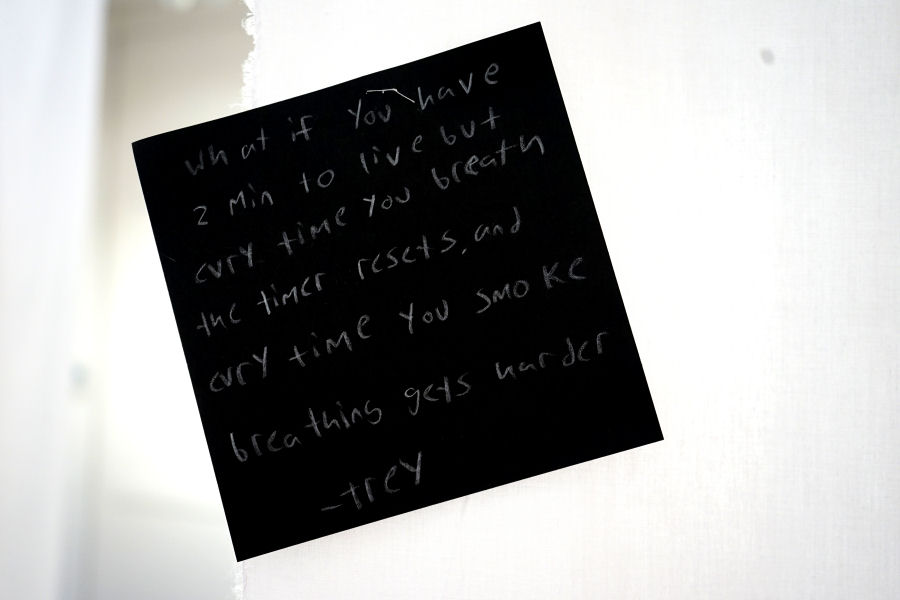 what if you have
2 min to live but
evry time you breath
the timer resets, and
evry time you smoke
breathing gets harder
-trey